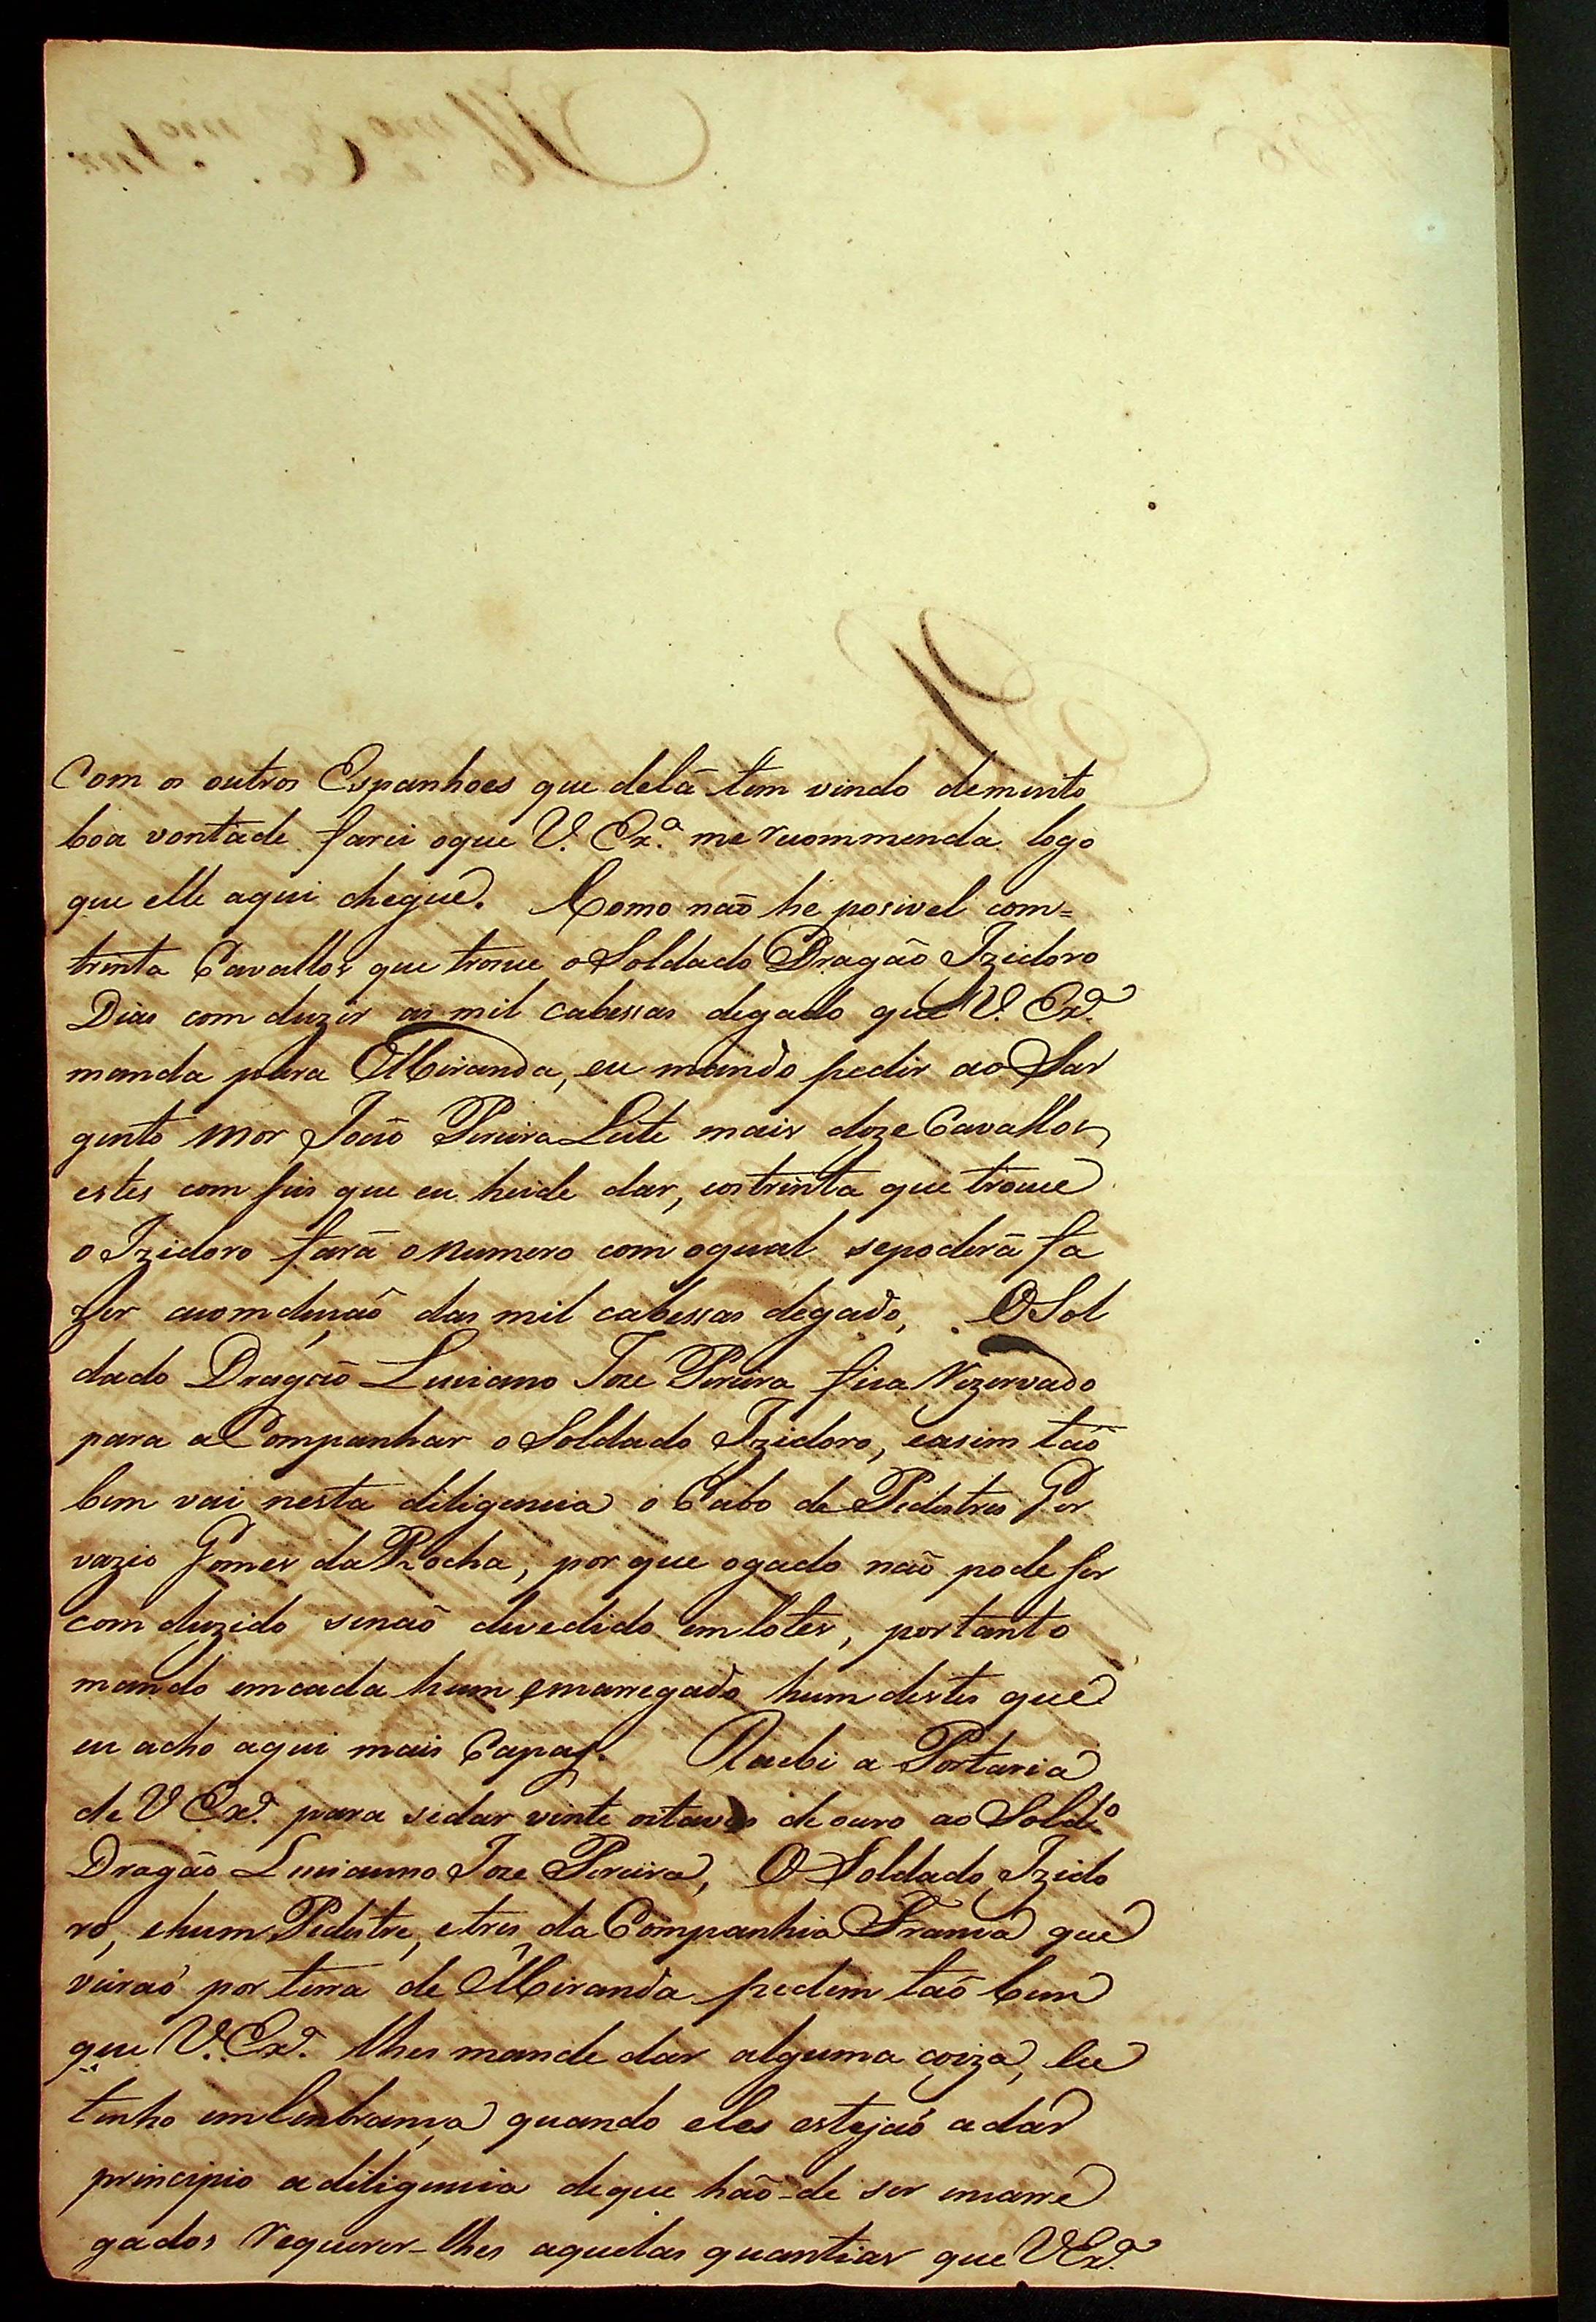 Com os outros Espanhoes que delá tem vindo demuito
boa vontade farei oque V. Exª. me recommenda logo
que elle aqui chegue. Como naõ he posivel com=
trinta Cavallos que trouce o Soldado Dragaõ Izidoro
Dias com duzir as mil cabessas degado que V. Exª.
manda para Miranda, eu mando pedir ao Sar
gento Mor Joaõ Pereira Leite mais doze Cavallos
estes com seis que eu heide dar, eos trinta que trouce
o Izidoro fará o numero com oqual sepoderá fa
zer acomduçaõ das mil cabessas degado, O Sol
dado Dragaõ Luciano Joze Pereira fica Rezervado
para aCompanhar o Soldado Izidoro, easim taõ
bem vai nesta diligencia o Cabo de Pedestres Ger
vazio Gomes da Rocha, por que ogado naõ pode ser
com duzido senaõ devedido emlotes, portanto
mando emcada hum emcarregado hum destes que
eu acho aqui mais Capaz. Recebi a Portaria
de V Exª. para sedar vinte oitavas de ouro ao Soldº
Dragaõ Lucianno Joze Pereira, O Soldado Izido
ro, ehum Pedestre, etres da Companhia Franca que
vieraõ por terra de Miranda pedem taõ bem
que V. Exª. lhes mande dar alguma coiza, eu
tenho emlembrança quando eles estejaõ adar
principio adiligencia deque haõ-de ser emcarre
gados requerer-lhes aquelas quantias que VExª.